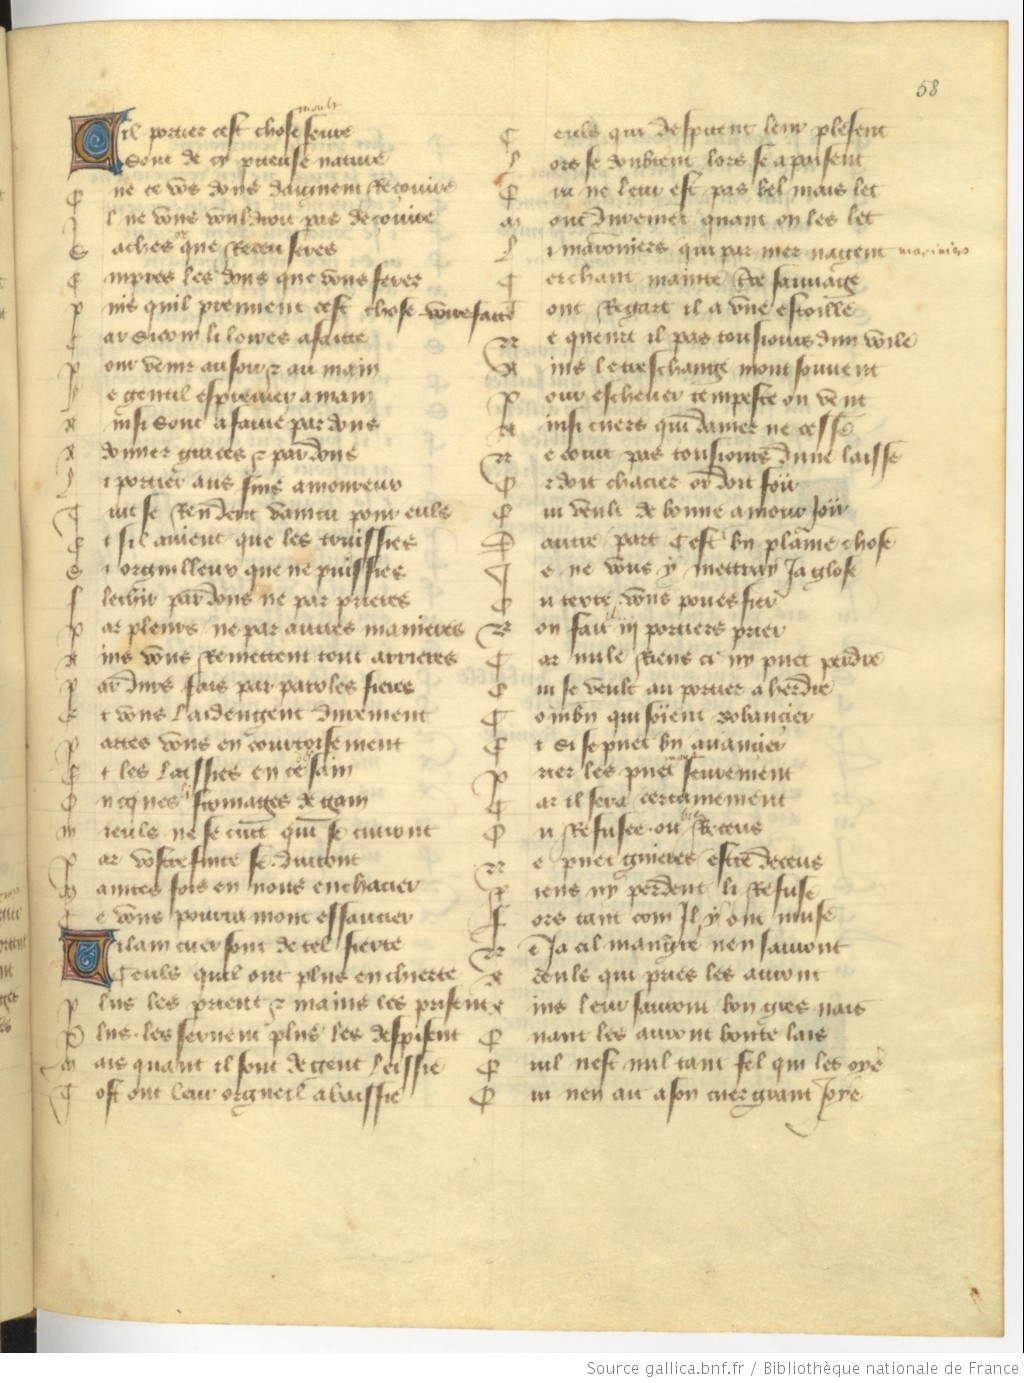 58
Cil portier cest chose seure
moult
Sont de cy piteuse nature
Que ce vous dons daignent Recouire
Il ne vous vouldroit pas decouire
Saches que Receu seres
Empres les dons que vous feres
Puis quil prennent cest chose toute faitte
Car sicom li loires afaitte
Pour venir au soir 7 au main
Le gentil esprevier a main
Ainsi sont afaitie par dons
A donner graces 7 pardons
Li portier aus fins amoureux
Tuit se Rendent vaincu pour euls
Et sil auient que les truissies
Si orguilleux que ne puissies
flechir par dons ne par prieres
Par pleurs ne par autres manieres
Ains vous Remettent tout arrieres
Par durs fais par paroles fieres
Et vous laidengent durement
Partes vous en courtoisement
Et les laissies en ce sain
Oncques fromages de gain
Mieuls ne se cuit quil se cuiront
Par vostre fuite se duiront
Maintes fois en vous enchacier
Ce vous pourra mont essaucier
Vilain cuer sont de tel fierte
Ceuls quil ont plus en chierte
Plus les prient 7 mains les prisent
Plus les seruent plus les despisent
Mais quant il sont de gent leissie
Tost ont leur orgueil abaissie
Ceuls qui despitent leur plesent
Lors se doubtent lors se apaisent
Qui ne leur est pas bel mais let
Mont durement quant on les let
Li maronniers qui par mer nagent
mariniers
Cerchant mainte Rive sauuage
Tont Regart il a vne estoille
Ne queurt il pas tousiours dun voile
Ains le treschange mont souuent
Pour escheuer tempeste ou vent
Ainsi cuers qui damer ne cesse
Ne court pas tousiours dune laisse
Or doit chacier or doit foir
Qui veult de bonne amour Joir
Dautre part Cest bn plaine chose
Je ne vous y mettray Ja glose
Ou texte vous poues fier
Bon fait iij portiers prier
Car nule Riens cy ny puet perdre
Qui se veult au portier aherdre
Combn qui soient bobancier
Et si se puet bn auancier
Prier les puet seurement
Car il sera certainement
Ou Refusee ou bn Receus
Ne puet guieres estre deceus
Riens ny perdent li Refuse
Fors tant com Il y ont muse
Ne Ja cil maugre nen sauront
A ceuls qui pries les auront
Ains leur sauront bon gres nais
Quant les auront boute lais
Quil nest nul tant fel qui les oye
Qui nen ait a son cuer grant Joye
Source gallica.bnf.fr / Bibliothèque nationale de France